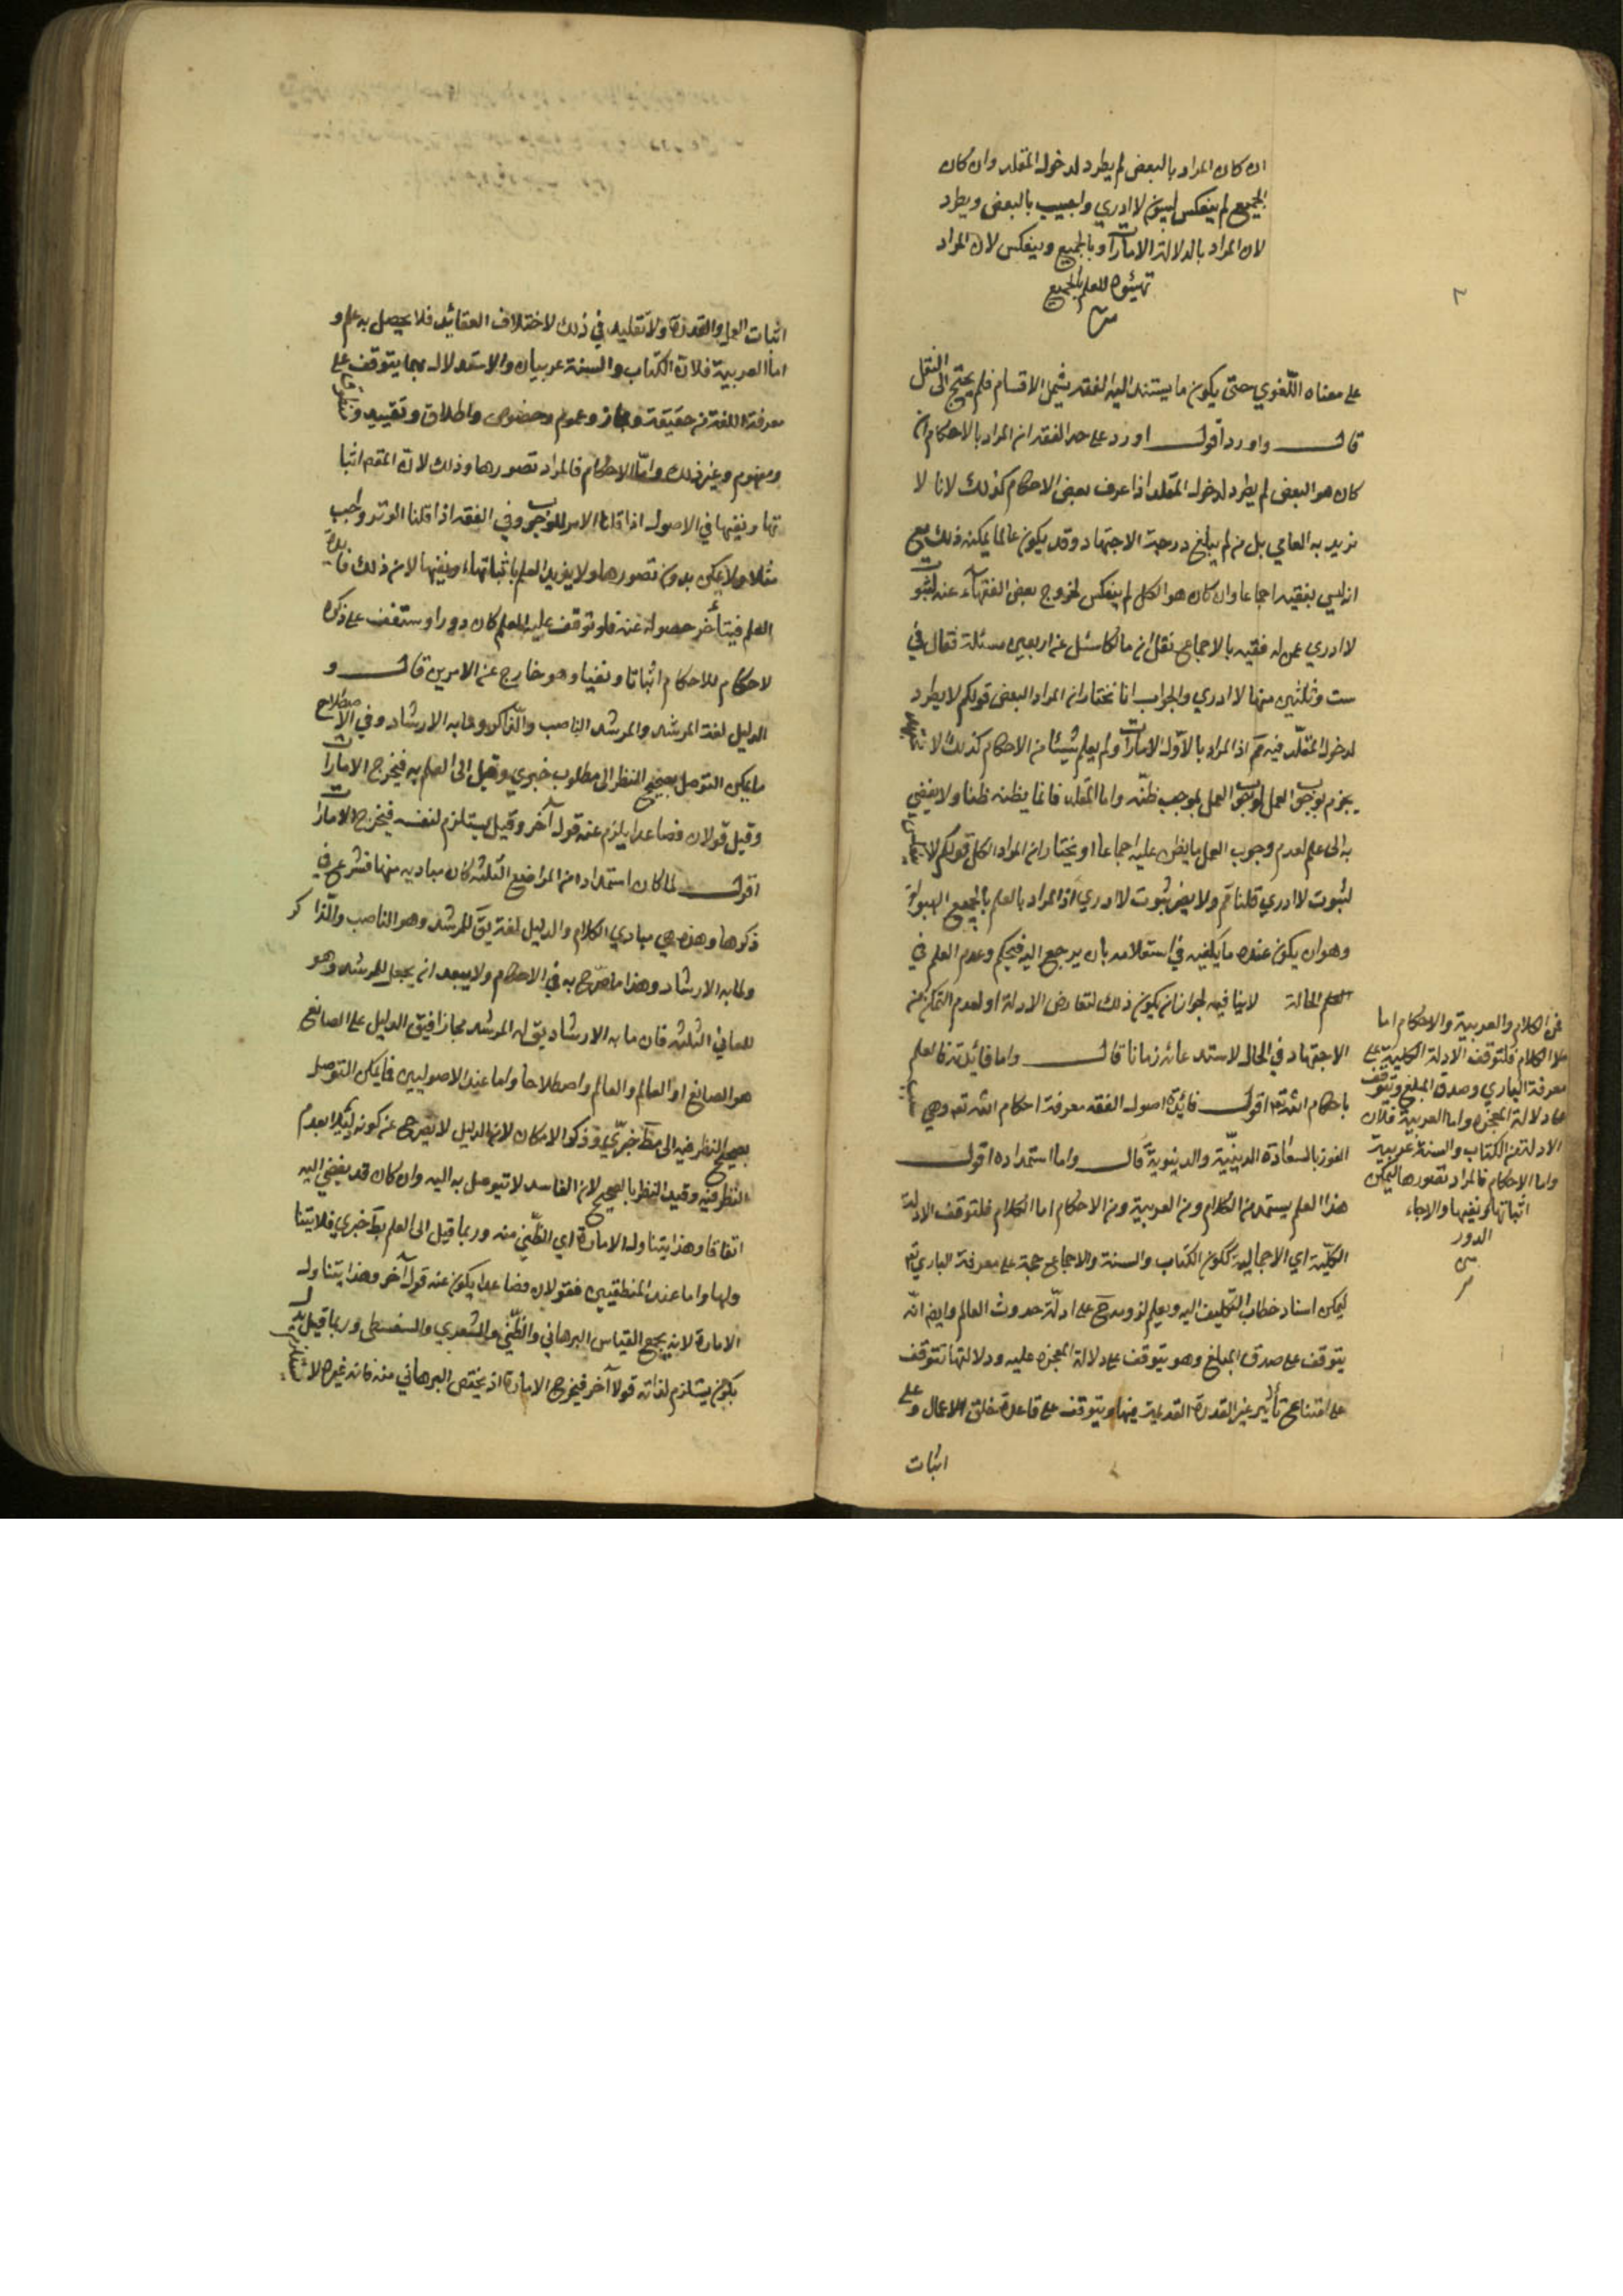 ٢
ان كان المراد بالبعض لم يطرد لدخول المقلد وان كان
الجميع لم ينعكس لثبوت لا ادري واجيب بالبعض ويطرد
لان المراد بالادلة الامارات وبالجميع وينعكس لان المراد
تهيئوه للعلم بالجميع
على معناه اللّغوي حتى يكون ما يستند اليه الفقه يشمل الاقسام فلم يحتج الى النقل
قال واورد اقول اورد على حد الفقه ان المراد بالاحكام ان
كان هو البعض لم يطرد لدخول المقلد اذا عرف بعض الاحكام كذلك لانا لا
نريد به العامي بل من لم يبلغ درجة الاجتهاد وقد يكون عالما يمكنه ذلك مع
انه ليس بفقيه اجماعا وان كان هو الكل لم ينعكس لخروج بعض الفقهاء عنه لثبوت
لا ادري عمن له فقيه بالاجماع نقل ان مالكا سئل عن اربعين مسئلة فقال في
ست وثلثين منها لا ادري والجواب انا نختار ان المراد البعض قولكم لا يطرد
لدخول المقلّد فيه مم اذ المراد بالادلة الامارات ولم يعلم شيئا من الاحكام كذلك الا
يجزم بوجوب العمل لوجوب العمل بموجب ظنّه واما المقلد فانما يظنه ظنا ولا يفضي
به الى علم لعدم وجوب العمل بما يظن عليه اجماعا او نختار ان المراد الكل قولكم لا ينعكس
لثبوت لا ادري قلنا مم ولا يضر ثبوت لا ادري اذ المراد بالعلم بالجميع التهيؤ له
وهو ان يكون عنده ما يكفيه في استعلامه بان يرجع اليه فيحكم وعدم العلم في
الحالة لا ينافيه لجواز ان يكون ذلك لتعارض الادلة او لعدم التمكن من
الاجتهاد في الحال لاستدعائه زمانا قال واما فائدته فالعلم
باحكام الله تع اقول فائدة اصول الفقه معرفة احكام الله تع وهي
الفوز بالسعادة الدينيّة والدنيوية قال واما استمداده اقول
هذا العلم يستمد من الكلام ومن العربية ومن الاحكام اما الكلام فلتوقف الادلة
الكلّية اي الاجمالية ككون الكتاب والسنة والاجماع حجة على معرفة الباري تع
ليمكن اسناد خطاب التكليف اليه ويعلم لزومه على ادلّة حدوث العالم وايضا انّه
يتوقف على صدق المبلغ وهو يتوقف على دلالة المعجزة عليه ودلالتها تتوقف
على امتناع تأثير غير القدرة القديمة فيها ويتوقف على قاعدة خلق الاعمال وعلى
اثبات
فمن الكلام والعربية والاحكام اما
الكلام فلتوقف الادلة الكلية على
معرفة الباري وصدق المبلغ ويتوقف
على دلالة المعجزة واما العربية فلان
الادلة من الكتاب والسنة عربية
واما الاحكام فالمراد تصورها ليمكن
اثباتها ونفيها والا جاء
الدور
اثبات العلم والقدرة ولا تقليد في ذلك لاختلاف العقائد فلا يحصل به علم و
اما العربية فلان الكتاب والسنة عربيان والاستدلال بهما يتوقف على
معرفة اللغة من حقيقة ومجاز وعموم وخصوص واطلاق وتقييد ومنطوق
ومفهوم وغير ذلك وامّا الاحكام فالمراد تصورها وذلك لان المقصد اثبا
تها ونفيها في الاصول اذا قلنا الامر للوجوب وفي الفقه اذا قلنا الوتر واجب
مثلا ولا يمكن بدون تصورها ولا يريد العلم باثباتها ونفيها لان ذلك فائدة
العلم فيتأخر حصوله عنه فلو توقف عليه العلم كان دورا وستقف على ذكره
لاحكام للاحكام اثباتا ونفيا وهو خارج عن الامرين قال و
الدليل لغة المرشد والمرشد الناصب والذاكر وما به الارشاد وفي الاصطلاح
ما يمكن التوصل بصحيح النظر الى مطلوب خبري وقيل الى العلم به فيخرج الامارات
وقيل قولان فصاعدا يلزم عنه قول آخر وقيل يستلزم لنفسه فيخرج الامارات
اقول لما كان استمداده من المواضع الثلثة كان مباديه منها فشرع في
ذكرها وهذه هي مبادي الكلام والدليل لغة يق للمرشد وهو الناصب والذاكر
ولما به الارشاد وهذا ما صرّح به في الاحكام ولا يبعد ان يجعل للمرشد وهو
للمعاني الثلثة فان ما به الارشاد يق له المرشد مجازا فيق الدليل على الصانع
هو الصانع او العالم والعالم واصطلاحا واما عند الاصوليين فما يمكن التوصل
بصحيح النظر فيه الى مط خبريّ وذكر الامكان لان الدليل لا يخرج عن كونه دليلا بعدم
النظر فيه وقيد النظر بالصحيح لان الفاسد لا يتوصل به اليه وان كان قد يفضي اليه
اتفاقا وهذا يتناول الامارة اي الظنّي منه وربما قيل الى العلم بمط خبري فلا يتنا
ولها واما عند المنطقيين فقولان فصاعدا يكون عنه قول آخر وهذا يتناول
الامارة لانه يجمع القياس البرهاني والظنّي والشعري والسفسطي وربما قيل بدل
يكون يستلزم لذاته قولا آخر فيخرج الامارة اذ يختص البرهاني منه فانه غيره لا